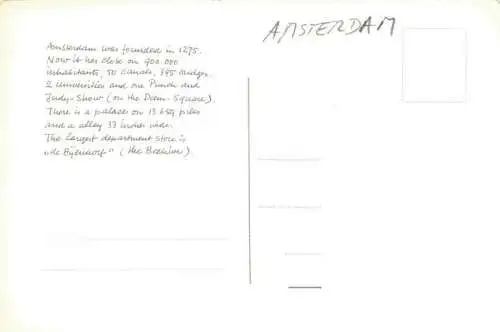 AMSTERDAM
Amsterdam was founded in 1275.
Now it has close on 900.000
inhabitants, 50 canals, 395 bridges
2 universities and one Punch and
Judy-Show (on the Dam-Square).
There is a palace on 13.659 piles
and a alley 33 inches wide.
The largest department store is
"de Bijenkorf" (the Beehive).